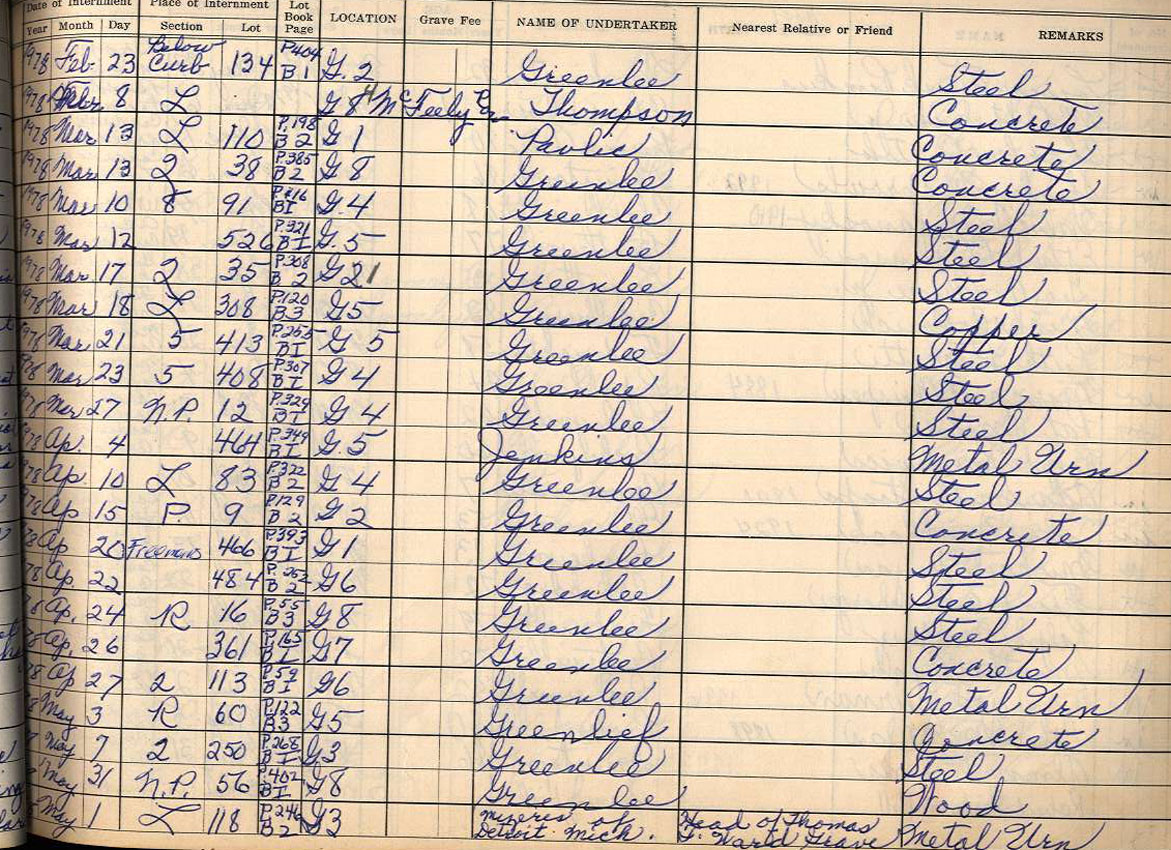 Date of Interment Place of Internment Lot Book Page LOCATION Grave Fee NAME OF UNDERTAKER Nearest Relative or Friend REMARKS
Year Month Day Section Lot
1978 Feb. 23 Below Curb 134 P404 B1 G.2 Greenlee Steel
1978 8 L G8 McFeely Thompson Concrete
1978 Mar 13 L 110 P.198 B2 G1 Pavlic Concrete
1978 Mar. 13 2 38 P.385 B2 G8 Greenlee Concrete
1978 Mar 10 8 91 P416 BI G.4 Greenlee Steel
1978 Mar 12 526 P.321 BI G.5 Greenlee Steel
1978 Mar. 17 2 35 P.308 B2 G21 Greenlee Steel
1978 Mar 18 L 308 P.120 B3 G5 Greenlee Copper
1978 Mar. 21 5 413 P.255 BI G5 Greenlee Steel
1978 Mar. 23 5 408 P.307 BI G4 Greenlee Steel
1978 Mar 27 N.P. 12 P.329 BI G4 Greenlee Steel
1978 Ap. 4 464 P.349 BI G.5 Jenkins Metal Urn
1978 Ap. 10 L 83 P.322 B2 G4 Greenlee Steel
1978 Ap 15 P. 9 P.129 B2 G2 Greenlee Concrete
78 Ap. 20 Freemans 466 P.393 BI G1 Greenlee Steel
78 Ap. 22 484 P.252 B2 G6 Greenlee Steel
8 Ap. 24 R 16 P.55 B3 G8 Greenlee Steel
8 Ap. 26 361 P.165 BI G7 Greenlee Concrete
8 Ap 27 2 113 P.59 BI G6 Greenlee Metal Urn
8 May 3 R 60 P.122 B3 G5 Greenlief Concrete
May 7 2 250 P.268 BI G.3 Greenlee Steel
May 31 N.P. 56 P.402 BI G8 Greenlee Wood
May 1 L 118 P.246 B2 G3 of Detroit Mich. Head of Thomas F. Ward Grave Metal Urn